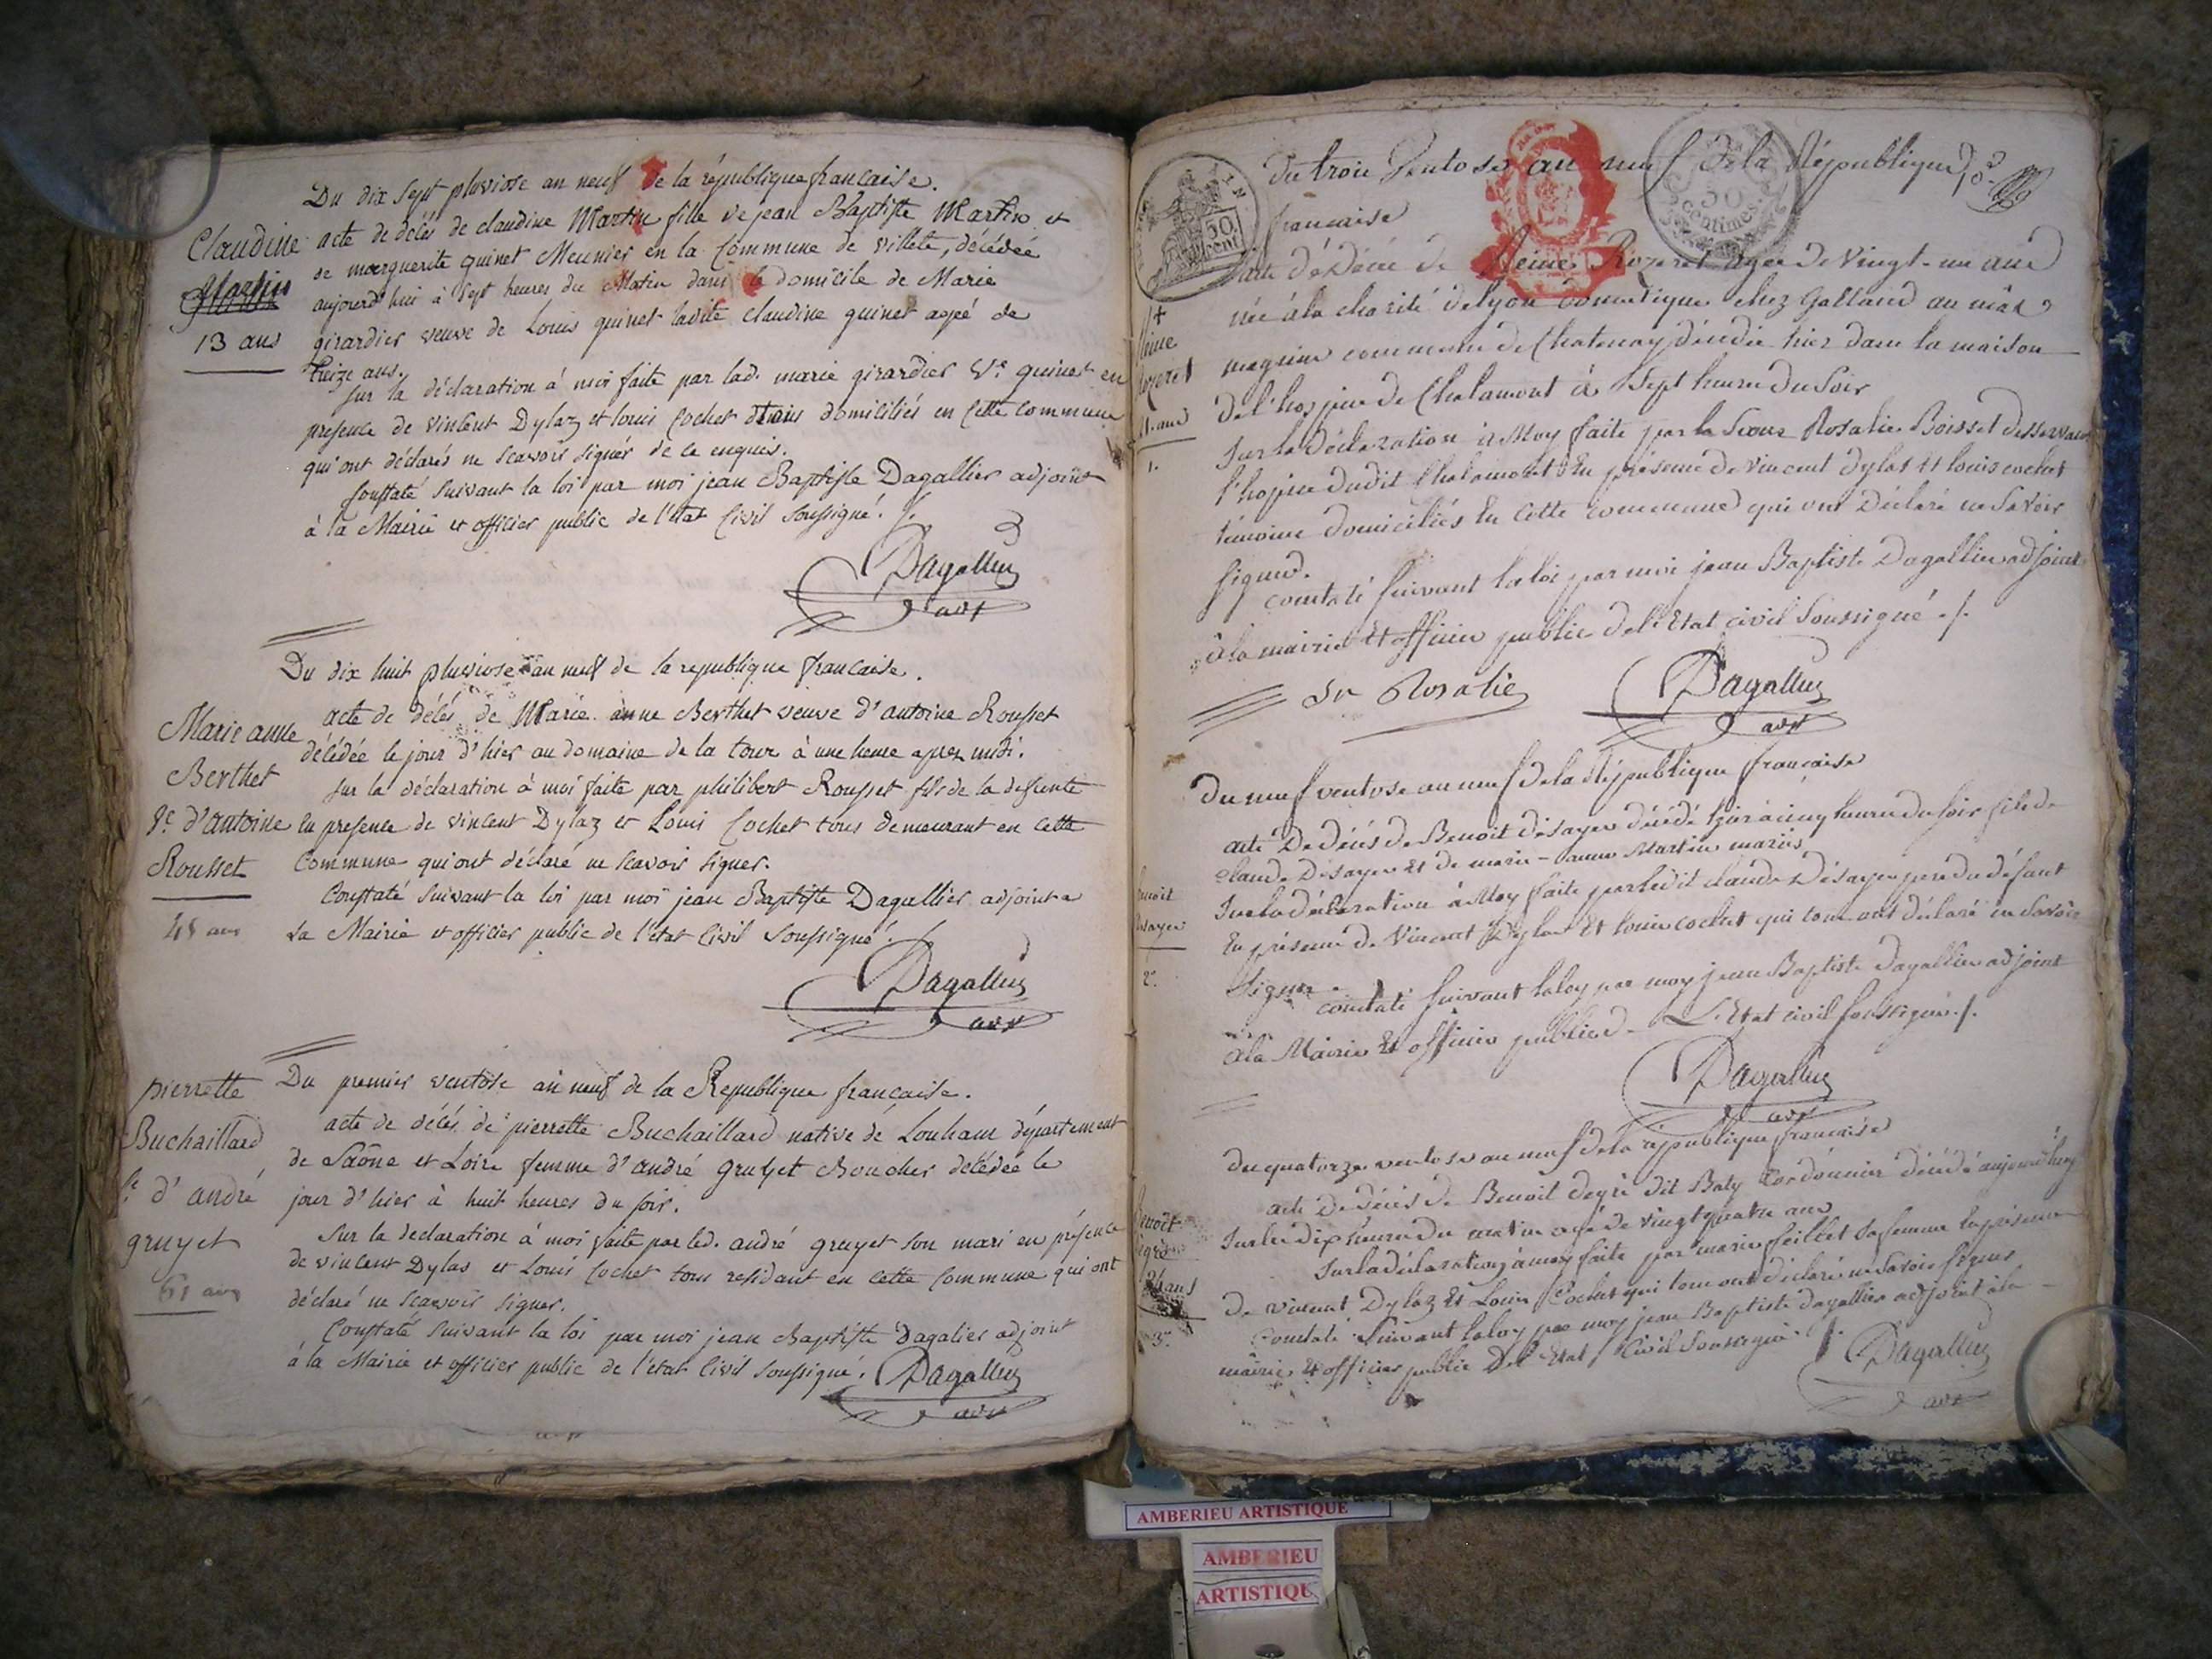 Du dix sept pluviose an neuf de la république francaise.
Claudine
Martin
13 ans
acte de décès de claudine Martin fille de jean Baptiste Martin et
de marguerite quinet Meunier en la Commune de villete, décédée
aujourd'hui à sept heures du Matin dans le domicile de Marie
girardier veuve de Louis quinet ladite claudine quinet agée de
treize ans.
sur la déclaration à moi faite par lad. marie girardier Ve quinet en
presence de vincent Dylaz et louis Cochet domiciliés en cette commune
qui ont déclarés ne scavoir signer de ce enquis.
Constaté suivant la loi par moi jean Baptiste Dagallier adjoint
à la Mairie et officier public de l'état Civil soussigné ./.
Dagallier
adjt
Du dix huit pluviose an neuf de la republique francaise.
Marie anne
Berthet
Ve d'antoine
Rousset
45 ans
acte de décés de Marie anne Berthet veuve d'antoine Rousset
décédée le jour d'hier au domaine de la tour à une heure apres midi.
sur la déclaration à moi faite par philibert Rousset fils de la defunte
en presence de vincent Dylaz et Louis Cochet tous demeurant en cette
Commune qui ont déclaré ne scavoir signer.
Constaté suivant la loi par moi jean Baptiste Dagallier adjoint a
la Mairie et officier public de l'état Civil soussigné.
Dagallier
adjt
Du premier ventose an neuf de la Republique francaise.
pierrette
Buchaillard
fe d'andré
gruyet
61 ans
acte de décés de pierrette Buchaillard native de Louhans département
de Saône et Loire femme d'andré gruyet Boucher décédée le
jour d'hier à huit heures du soir.
sur la declaration à moi faite par led. andré gruyet son mari en présence
de vincent Dylas et Louis Cochet tous residant en cette Commune qui ont
déclaré ne scavoir signer.
Constaté suivant la loi par moi jean Baptiste Dagalier adjoint
à la Mairie et officier public de l'état Civil soussigné.
Dagallier
adjt
50
cent
50
centimes
du trois Ventose an neuf de la République
francaise
Reine
Rozeret
21. ans
1.
acte de décés de Reine Rozeret agée de vingt-un ans
née à la charité de lyon domestique chez Galland au mas
magnin commune de Chatenay décédée hier dans la maison
de l'hospice de Chalamont à sept heures du soir
Sur la déclaration à Moy faite par la Soeur Rosalie Boisset desservant
l'hospice dudit Chalamont En présence de vincent dylas et louis cochet
témoins domiciliés En cette commune qui ont déclaré ne Savoir
signer.
constaté suivant la loi par moi jean Baptiste Dagallier adjoint
à la mairie Et officier public de l'Etat civil Soussigné ./.
Sr Rosalie
Dagallier
adjt
du neuf ventose an neuf de la République francaise
Benoit
desayer
2.
acte De décés de Benoit désayer décédé hier à cinq heures du soir fils de
claude Désayer Et de marie-anne Martin mariés
Sur la déclaration à Moy faite par ledit claude Désayer pere du défunt
En présence de Vincent Dylas Et louis cochet qui tous ont déclaré ne Savoir
Signer.
constaté suivant la loy par moy jean Baptiste dagallier adjoint
à la Mairie Et officier public de L'Etat civil soussigné ./.
Dagallier
adjt
du quatorze ventose an neuf de la république francaise
Benoit
degré
24 ans
3.
acte De décés de Benoit degré dit Baly Cordonnier décédé aujourd'huy
Sur les dix heures du matin agé de vingt quatre ans
Sur la déclaration à moy faite par marie feillet sa femme En présence
de vincent Dylaz Et Louis Cochet qui tous ont déclaré ne Savoir signer
Constaté Suivant la loy par moy jean Baptiste dagallier adjoint à la
mairie Et officier public de l'Etat Civil Soussigné ./.
Dagallier
adjt
AMBERIEU ARTISTIQUE
AMBERIEU
ARTISTIQU